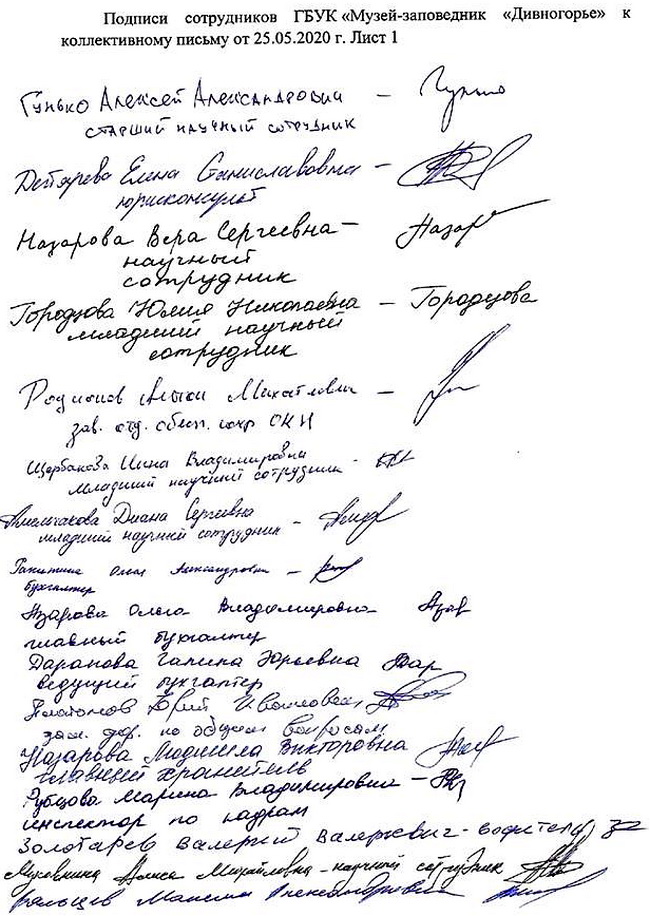 Подписи сотрудников ГБУК «Музей-заповедник «Дивногорье» к
коллективному письму от 25.05.2020 г. Лист 1
Гунько Алексей Александрович – Гунько
старший научный сотрудник
Дегтярева Елена Станиславовна –
юрисконсульт
Назарова Вера Сергеевна – Назар
научный
сотрудник
Городцова Юлия Николаевна – Городцова
младший научный
сотрудник
Родионов Михайлович –
зав. отд. обесп. сохр ОКН
Щербакова Инна Владимировна -
младший научный сотрудник
Диана Сергеевна -
младший научный сотрудник
Ольга Александровна -
бухгалтер
Азарова Ольга Владимировна Азар
главный бухгалтер
Галина Юрьевна
ведущий бухгалтер
Платонов Юрий Иванович
зам. дир. по общим вопросам
Назарова Людмила Викторовна
главный хранитель
Рубцова Марина Владимировна -
инспектор по кадрам
Золотарев Валерий Валерьевич - водитель
Алиса Михайловна - научный сотрудник
Максим Александрович